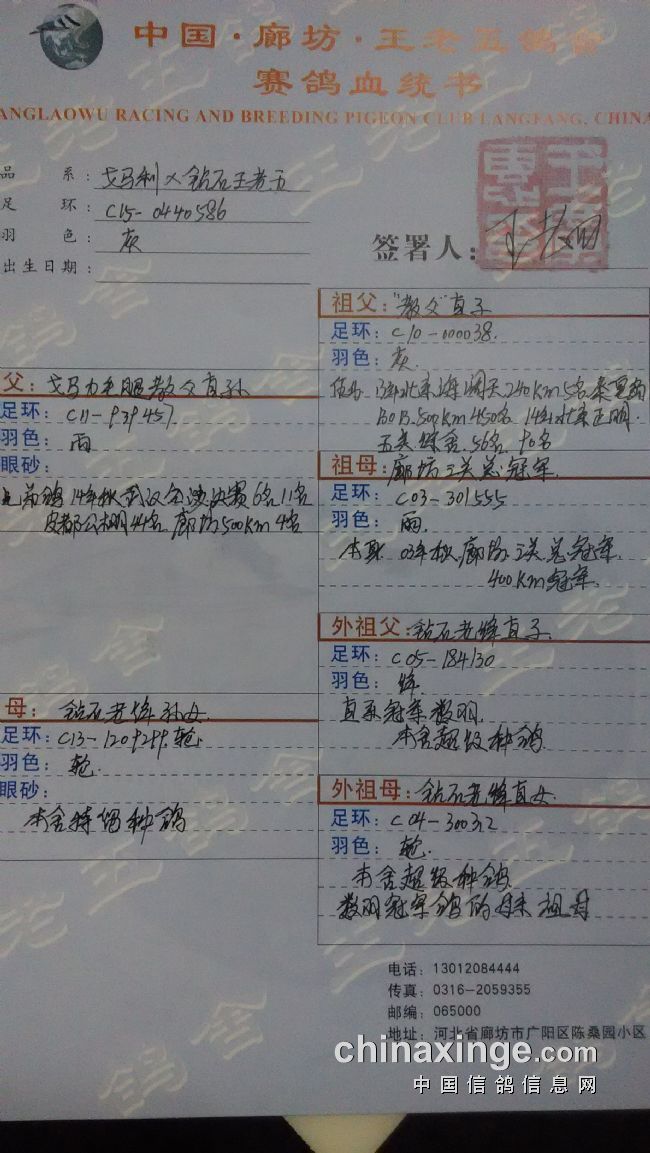 中国·廊坊·王老五鸽舍
赛鸽血统书
ANGLAOWU RACING AND BREEDING PIGEON CLUB LANGFANG, CHINA
品 系: 戈马利×钻石王老五
足 环: C15-0440586
羽 色: 灰
出生日期:
签署人:
父: 戈马力毛腿教父直孙
足环: C11-939457
羽色: 雨
眼砂:
兄弟鸽14年秋武汉全决赛6名11名
44名 廊坊500Km 4名
母: 钻石老绛孙女
足环: C13-1209299. 轮
羽色: 轮
眼砂:
本舍特留种鸽
祖父: "教父"直子
足环: C10-000038.
羽色: 灰
240Km 5名
500Km 450名 14年北京正明
五关 56名 90名
祖母: 廊坊三关总冠军
足环: C03-301555
羽色: 雨.
本身 03年秋廊坊三关总冠军
400Km冠军
外祖父: 钻石老绛直子
足环: C05-184130
羽色: 绛
直系冠军数羽
本舍超级种鸽
外祖母: 钻石老绛直女
足环: C04-30032
羽色: 轮.
本舍超级种鸽
数羽冠军鸽的母亲 祖母
电话: 13012084444
传真: 0316-2059355
邮编: 065000
地址: 河北省廊坊市广阳区陈桑园小区
chinaxinge.com
中国信鸽信息网